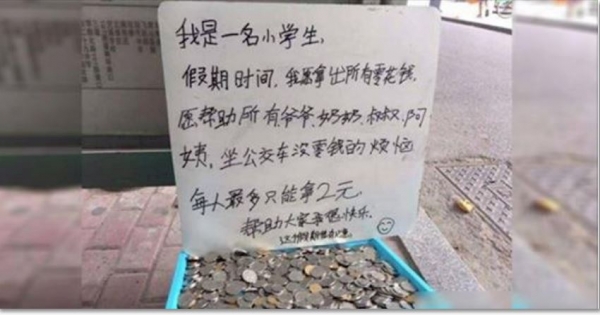 我是一名小学生.
假期时间,我愿拿出所有零花钱.
愿帮助所有爷爷.奶奶.叔叔.阿
姨.坐公交车没零钱的烦恼
每人最多只能拿2元.
帮助大家 快乐.